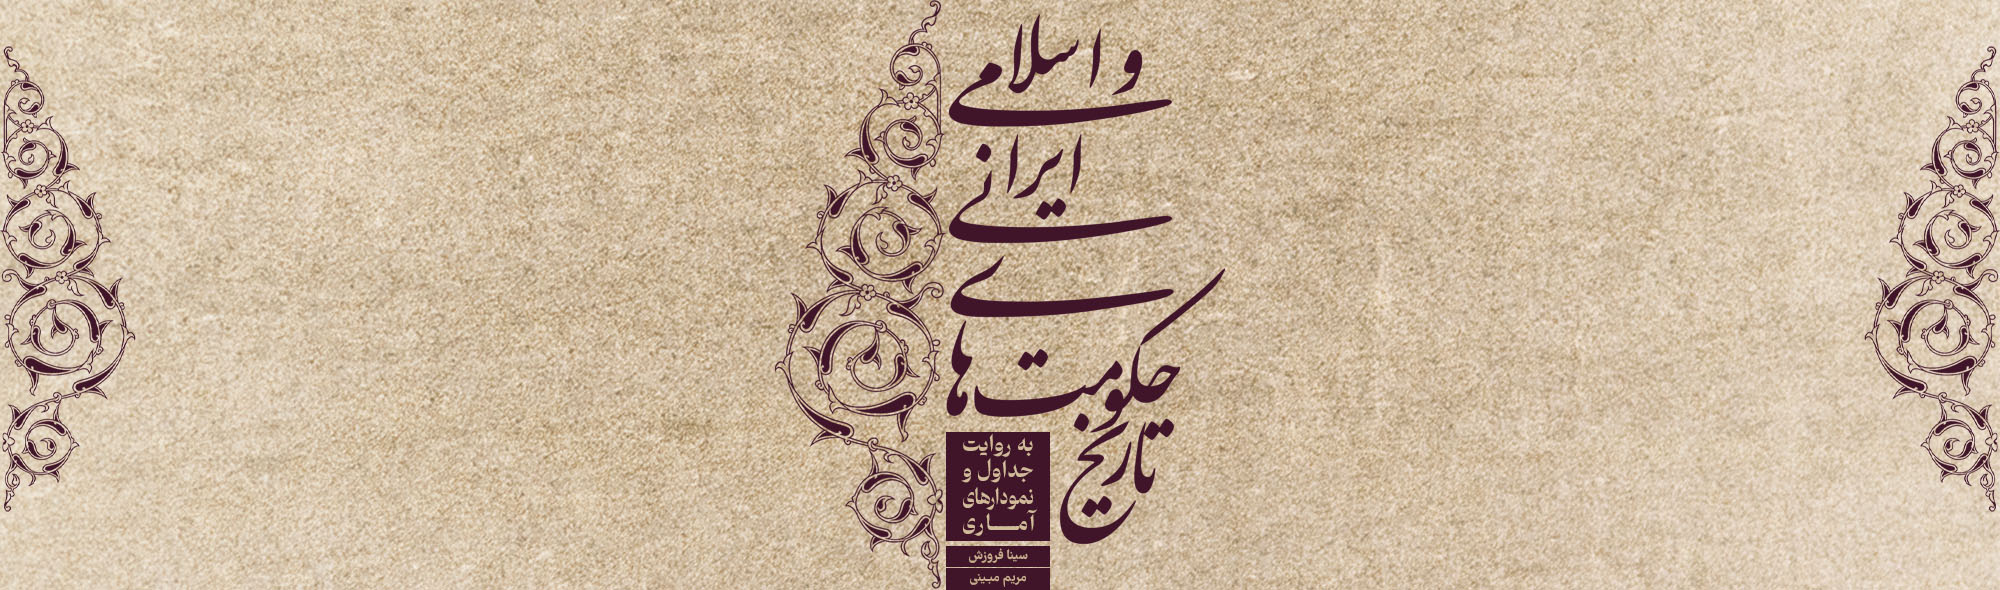 تاریخ
حکومت‌های
ایرانی
و اسلامی
به روایت
جداول و
نمودارهای
آمـــاری
سینا فروزش
مریم مبینی